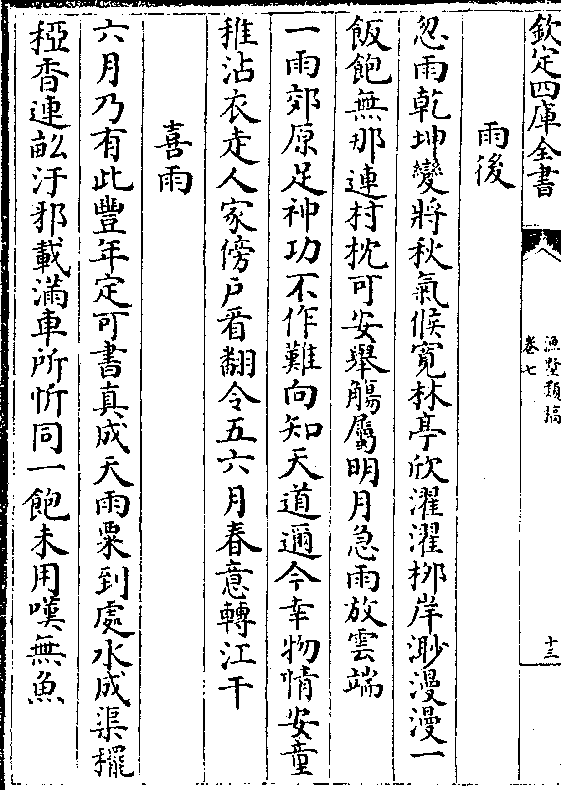 欽定四庫全書
漁墅類稿
卷七
十三
雨後
忽雨乾坤變將秋氣候寛林亭欣濯濯栁岸渺漫漫一
飯飽無那連村枕可安舉觴屬明月急雨放雲端
一雨郊原足神功不作難向知天道邇今幸物情安童
稚沾衣走人家傍戶看翻令五六月春意轉江干
喜雨
六月乃有此豐年定可書真成天雨粟到處水成渠䆉
稏香連畝汙邪載滿車所忻同一飽未用嘆無魚